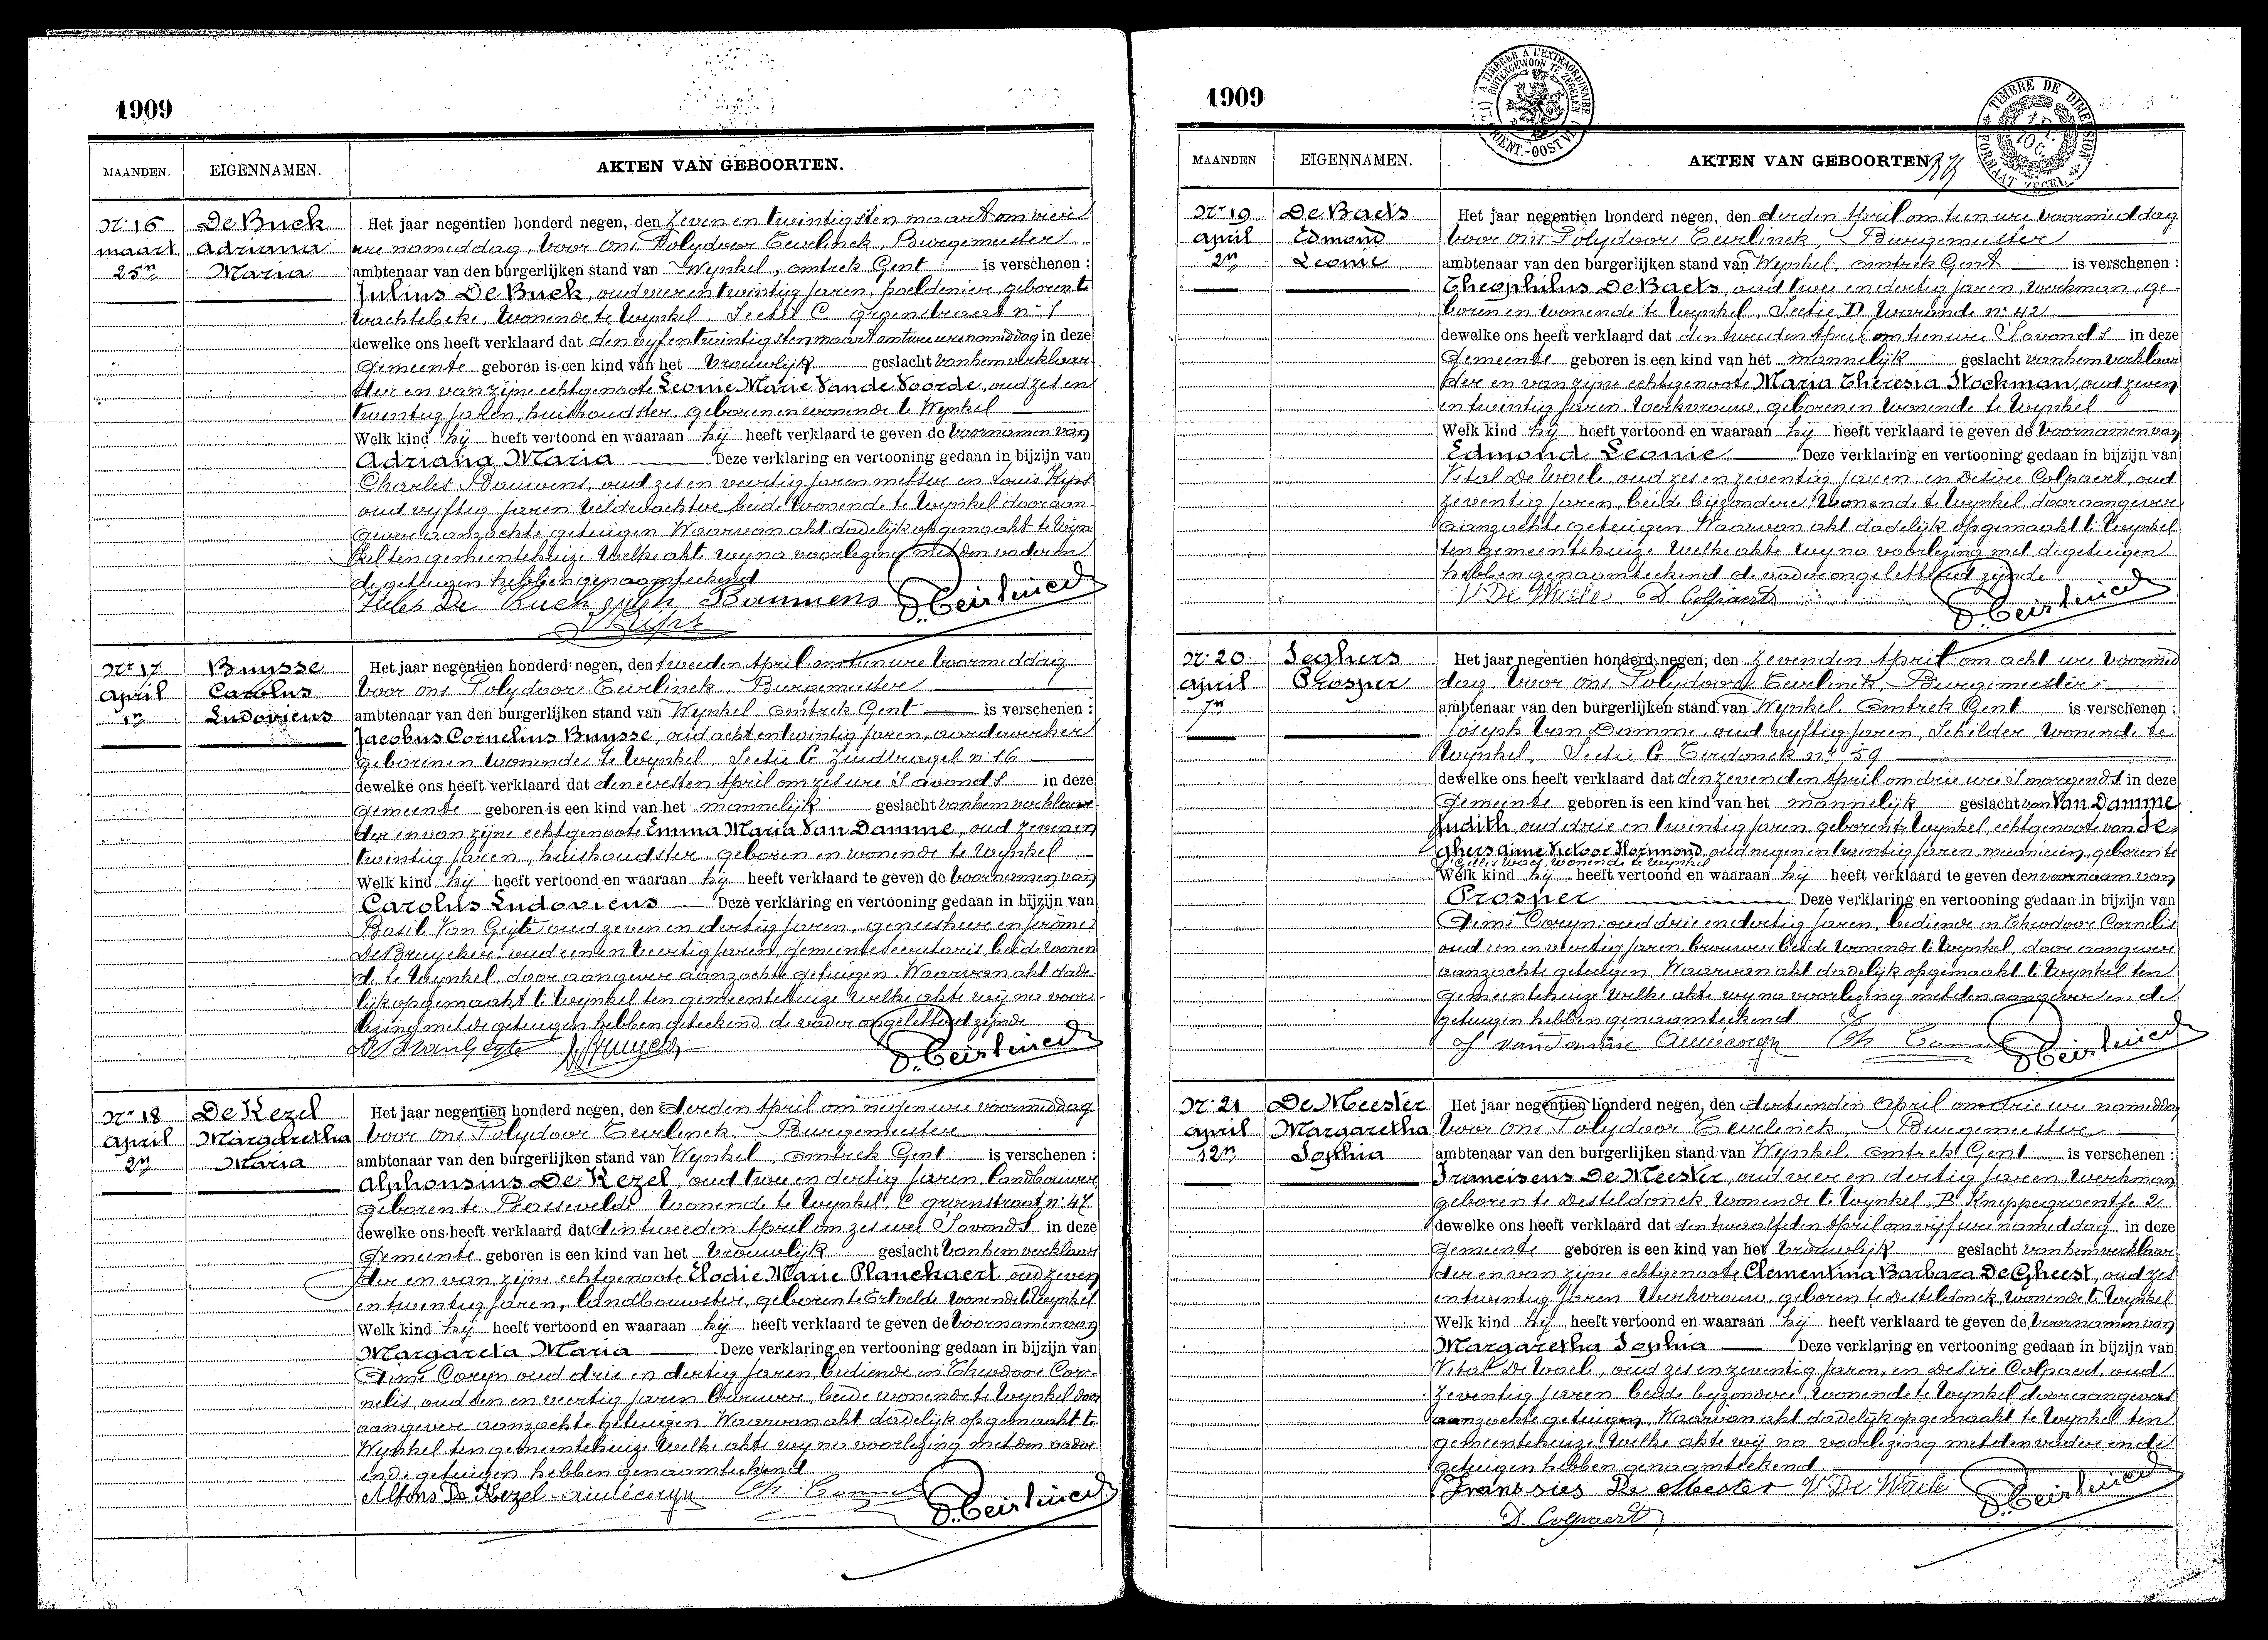 1909
MAANDEN. EIGENNAMEN. AKTEN VAN GEBOORTEN.
Nr 16 De Buck Het jaar negentien honderd negen, den zeven en twintigsten maart om vier
maart Adriana ure namiddag, voor ons Polydoor Ceirlinck, Burgemeester
25n Maria ambtenaar van den burgerlijken stand van Wynkel, omtrek Gent is verschenen :
Julius De Buck, oud vier en twintig jaren, geboren te
Wachtebeke, wonende te Wynkel, Sectie C groenstraat nr
dewelke ons heeft verklaard dat den vyf en twintigsten maart om twee ure namiddag in deze
Gemeente geboren is een kind van het Vrouwlijk geslacht van hem verklaar-
der en van zijne echtgenoote Leonie Marie Van de Voorde, oud zes en
twintig jaren, huishoudster, geboren en wonende te Wynkel
Welk kind hij heeft vertoond en waaraan hij heeft verklaard te geven de voornamen van
Adriana Maria Deze verklaring en vertooning gedaan in bijzijn van
Charles Bauwens, oud zes en veertig jaren metser en Louis Kyps
oud vyftig jaren veldwachter, beide wonende te Wynkel door aan-
gever aanzochte getuigen Waarvan akt dadelijk opgemaakt te Wyn-
kel ten gemeentehuize Welke akte wy na voorlezing met den vader en
de getuigen hebben genaamteekend
Jules De Buck Bauwens
Nr 17 Buysse Het jaar negentien honderd negen, den tweeden April om tien ure voormiddag
April Carolus voor ons Polydoor Ceirlinck, Burgemeester
1n Ludovicus ambtenaar van den burgerlijken stand van Wynkel, omtrek Gent is verschenen :
Jacobus Cornelius Buysse, oud acht en twintig jaren, aardewerker
geboren en wonende te Wynkel, Sectie C n 16
dewelke ons heeft verklaard dat den eersten April om zes ure 's avonds in deze
Gemeente geboren is een kind van het mannelijk geslacht van hem verklaar-
der en van zijne echtgenoote Emma Maria Van Damme, oud zeven en
twintig jaren, huishoudster, geboren en wonende te Wynkel
Welk kind hij heeft vertoond en waaraan hij heeft verklaard te geven de voornamen van
Carolus Ludovicus Deze verklaring en vertooning gedaan in bijzijn van
Basil Van Gyte oud zeven en dertig jaren, geneesheer en Jerôme
De Bruycker, oud een en veertig jaren, gemeentesecretaris, beide wonen-
de te Wynkel, door aangever aanzochte getuigen. Waarvan akt dade-
lijk opgemaakt te Wynkel ten gemeentehuize welke akte wij na voor-
lezing met de getuigen hebben geteekend de vader ongeletterd zijnde
Nr 18 De Kezel Het jaar negentien honderd negen, den derden April om negen ure voormiddag
April Margaretha voor ons Polydoor Ceirlinck, Burgemeester
2n Maria ambtenaar van den burgerlijken stand van Wynkel, omtrek Gent is verschenen :
Alphonsius De Kezel, oud twee en dertig jaren, landbouwer
geboren te Bassevelde wonende te Wynkel, C groenstraat nr 47
dewelke ons heeft verklaard dat den tweeden April om zes ure 's avonds in deze
Gemeente geboren is een kind van het Vrouwlijk geslacht van hem verklaar-
der en van zijne echtgenoote Elodie Marie Planckaert, oud zeven
en twintig jaren, landbouwster, geboren te Ertvelde wonende te Wynkel
Welk kind hij heeft vertoond en waaraan hij heeft verklaard te geven de voornamen van
Margareta Maria Deze verklaring en vertooning gedaan in bijzijn van
Aimé Coryn oud drie en dertig jaren, bediende en Theodoor Cor-
nelis, oud een en veertig jaren brouwer, beide wonende te Wynkel door
aangever aanzochte getuigen Waarvan akt dadelijk opgemaakt te
Wynkel ten gemeentehuize Welke akte wy na voorlezing met den vader
en de getuigen hebben genaamteekend
Alfons De Kezel Aimé Coryn
1909
A TIMBRER A L'EXTRAORDINAIRE
BUITENGEWOON TE ZEGELEN
TIMBRE DE DIMENSION
FORMAAT ZEGEL
MAANDEN EIGENNAMEN. AKTEN VAN GEBOORTEN
Nr 19 De Baets Het jaar negentien honderd negen, den derden April om tien ure voormiddag
April Edmond voor ons Polydoor Ceirlinck, Burgemeester
2n Leonie ambtenaar van den burgerlijken stand van Wynkel, omtrek Gent is verschenen :
Theophilus De Baets, oud twee en dertig jaren, werkman, ge-
boren en wonende te Wynkel, Sectie D Warande nr 42
dewelke ons heeft verklaard dat den tweeden April om tien ure 's avonds in deze
Gemeente geboren is een kind van het mannelijk geslacht van hem verklaar
der en van zijne echtgenoote Maria Theresia Stockman, oud zeven
en twintig jaren, werkvrouw, geboren en wonende te Wynkel
Welk kind hij heeft vertoond en waaraan hij heeft verklaard te geven de voornamen van
Edmond Leonie Deze verklaring en vertooning gedaan in bijzijn van
Vital De Waele oud zes en zeventig jaren, en Désiré Colpaert, oud
zeventig jaren, beide bijzondere, wonende te Wynkel door aangever
aanzochte getuigen Waarvan akt dadelijk opgemaakt te Wynkel
ten gemeentehuize Welke akte wy na voorlezing met de getuigen
hebben genaamteekend de vader ongeletterd zijnde
V De Waele D Colpaert
Nr 20 Seghers Het jaar negentien honderd negen, den zevenden April om acht ure voormid
April Prosper dag, voor ons Polydoor Ceirlinck, Burgemeester
7n ambtenaar van den burgerlijken stand van Wynkel, omtrek Gent is verschenen :
Joseph Van Damme, oud vyftig jaren, Schilder, wonende te
Wynkel, Sectie C Terdonck nr 59
dewelke ons heeft verklaard dat den zevenden April om drie ure 's morgends in deze
Gemeente geboren is een kind van het mannelijk geslacht van Van Damme
Judith, oud drie en twintig jaren, geboren te Wynkel, echtgenoote van Se-
ghers Aimé Victoor Hormond, oud negen en twintig jaren, mecanicien, geboren te
St Gillis Waas wonende te Wynkel
Welk kind hij heeft vertoond en waaraan hij heeft verklaard te geven den voornaam van
Prosper Deze verklaring en vertooning gedaan in bijzijn van
Aimé Coryn oud drie en dertig jaren, bediende en Theodoor Cornelis
oud een en veertig jaren, brouwer beide wonende te Wynkel, door aangever
aanzochte getuigen, Waarvan akt dadelijk opgemaakt te Wynkel ten
Gemeentehuize Welke akte wy na voorlezing met den aangever en de
getuigen hebben genaamteekend
J Van Damme Aimé Coryn
Nr 21 De Meester Het jaar negentien honderd negen, den dertienden April om drie ure namiddag
April Margaretha voor ons Polydoor Ceirlinck, Burgemeester
12n Sophia ambtenaar van den burgerlijken stand van Wynkel, omtrek Gent is verschenen :
Franciscus De Meester, oud vier en dertig jaren, Werkman
geboren te Desteldonck, wonende te Wynkel, B 2
dewelke ons heeft verklaard dat den twaalfden April om vijf ure namiddag in deze
Gemeente geboren is een kind van het Vrouwlijk geslacht van hem verklaar-
der en van zijne echtgenoote Clementina Barbara De Gheest, oud zes
en twintig jaren Werkvrouw, geboren te Desteldonck, wonende te Wynkel
Welk kind hij heeft vertoond en waaraan hij heeft verklaard te geven de voornamen van
Margaretha Sophia Deze verklaring en vertooning gedaan in bijzijn van
Vital De Waele, oud zes en zeventig jaren, en Désiré Colpaert, oud
zeventig jaren beide byzondere, wonende te Wynkel door aangever
aanzochte getuigen, Waarvan akt dadelijk opgemaakt te Wynkel ten
gemeentehuize Welke akte wij na voorlezing met den vader en de
getuigen hebben genaamteekend
Franssies De Meester V De Waele
D. Colpaert